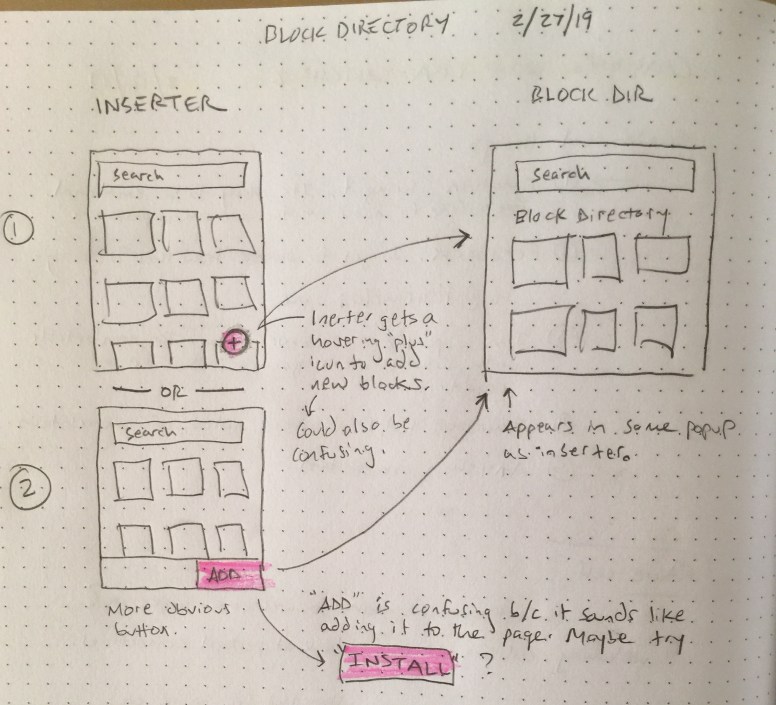 BLOCK DIRECTORY 2/27/19
INSERTER
BLOCK DIR
1
Search
+
Inerter gets a
hovering "plus"
icon to add
new blocks.
Could also be
confusing.
Search
Block Directory
Appears in same popup
as inserter.
OR
2
Search
ADD
More obvious
button.
"ADD" is confusing b/c it sounds like
adding it to the page. Maybe try
"INSTALL" ?